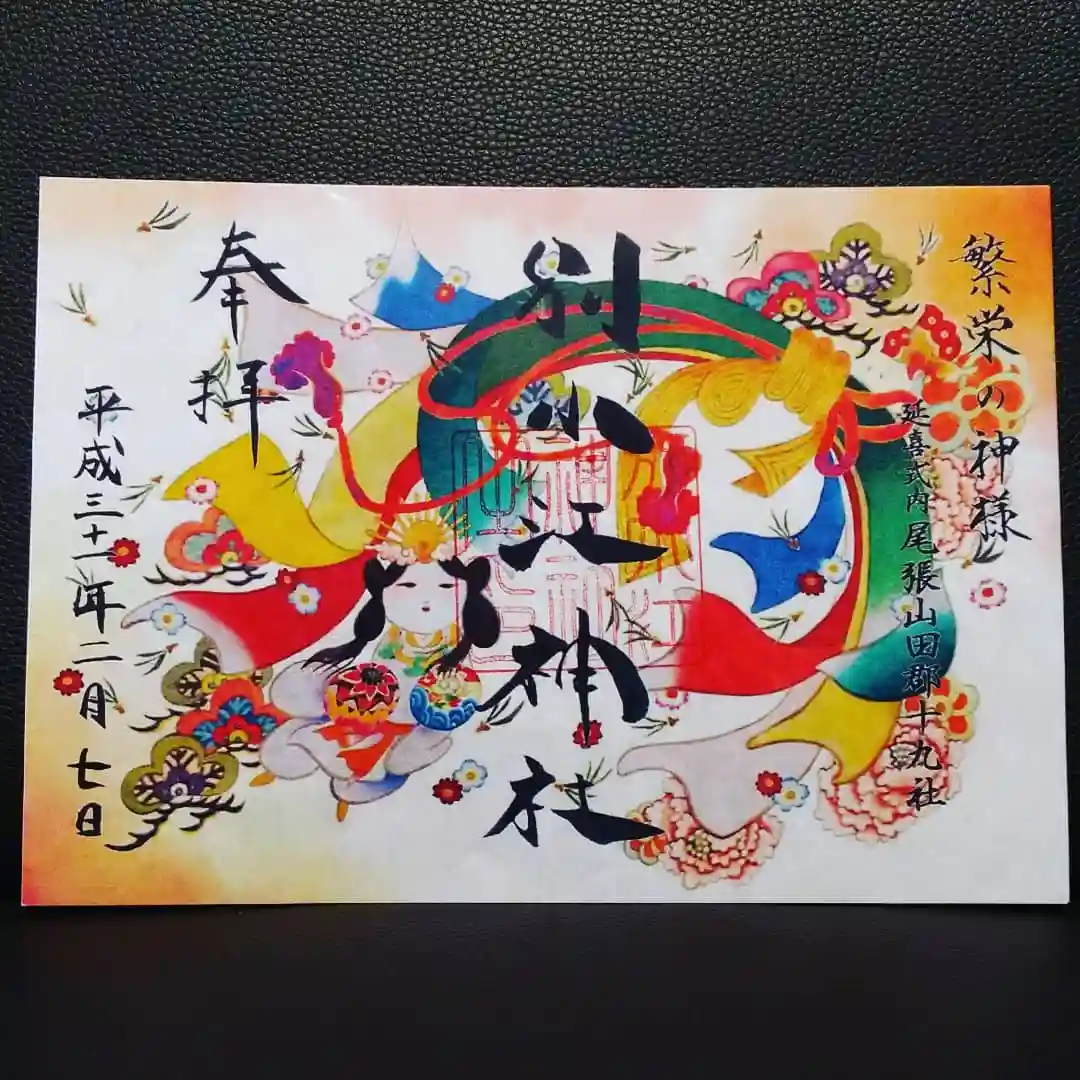 繁栄の神様
延喜式内尾張山田郡十九社
別小江神社
奉拝
平成三十一年二月七日